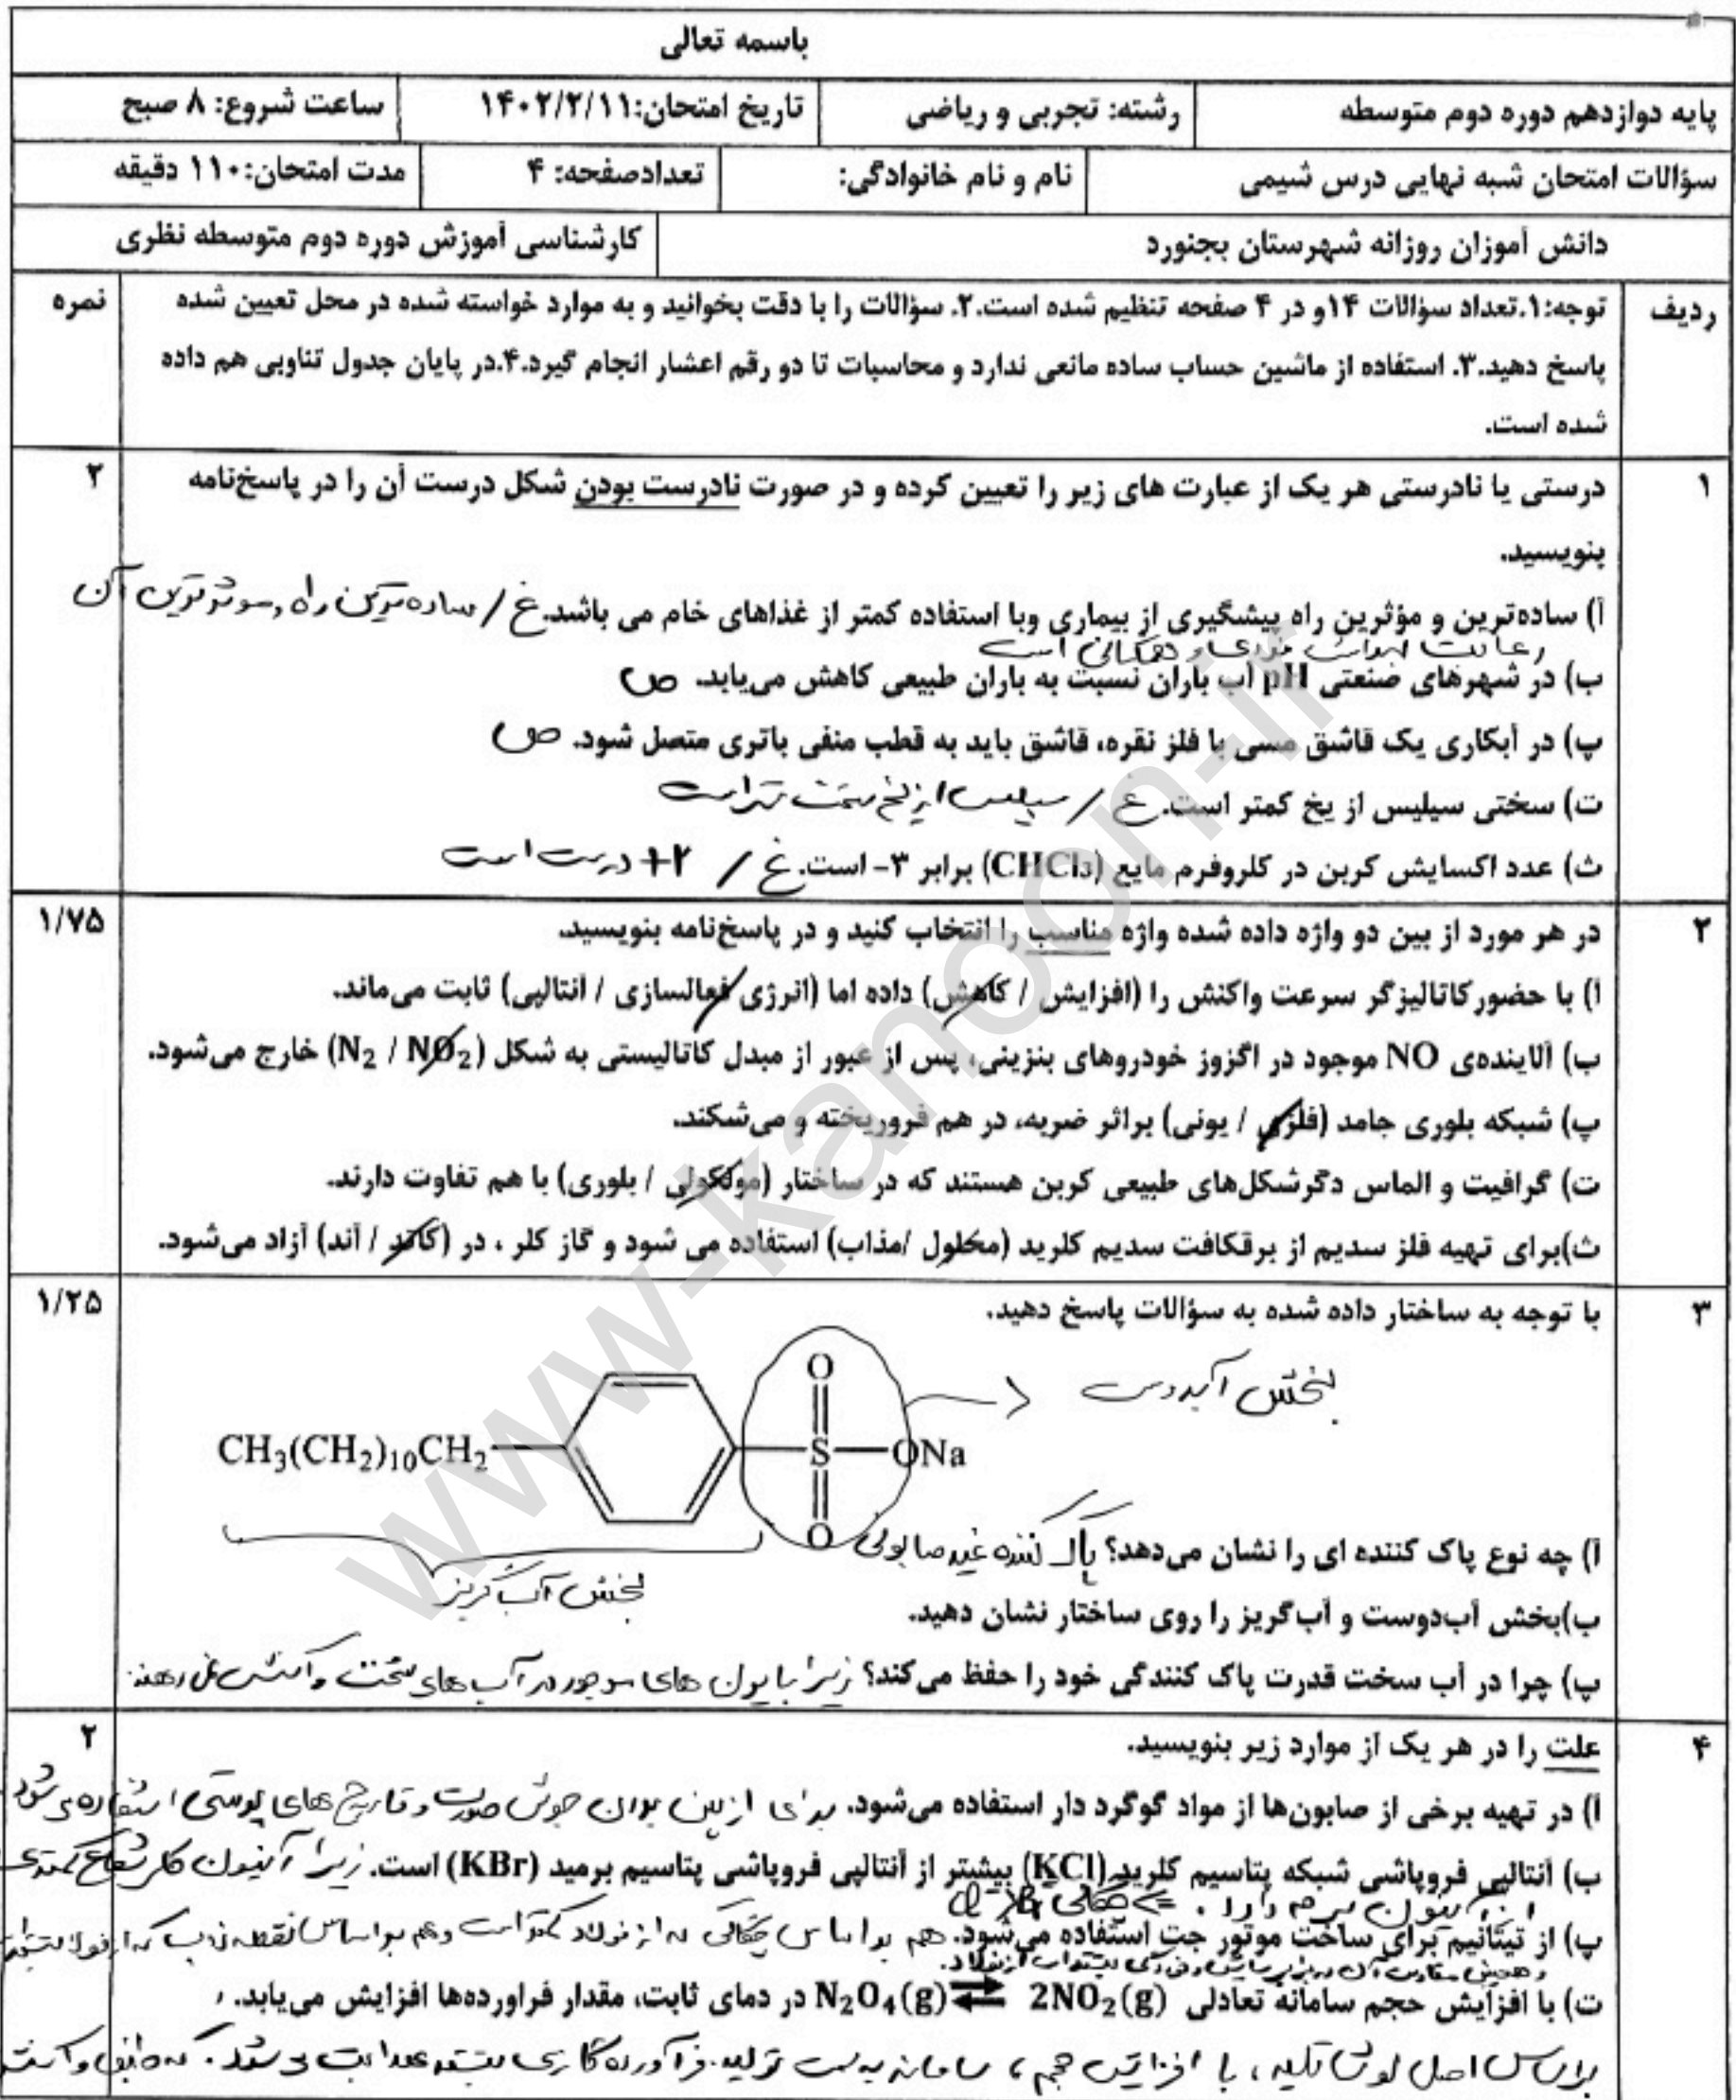 باسمه تعالی
پایه دوازدهم دوره دوم متوسطه رشته: تجربی و ریاضی تاریخ امتحان:۱۴۰۲/۲/۱۱ ساعت شروع: ۸ صبح
سؤالات امتحان شبه نهایی درس شیمی نام و نام خانوادگی: تعدادصفحه: ۴ مدت امتحان:۱۱۰ دقیقه
دانش آموزان روزانه شهرستان بجنورد کارشناسی آموزش دوره دوم متوسطه نظری
ردیف توجه:۱.تعداد سؤالات ۱۴و در ۴ صفحه تنظیم شده است.۲. سؤالات را با دقت بخوانید و به موارد خواسته شده در محل تعیین شده نمره
پاسخ دهید.۳. استفاده از ماشین حساب ساده مانعی ندارد و محاسبات تا دو رقم اعشار انجام گیرد.۴.در پایان جدول تناوبی هم داده
شده است.
۱ درستی یا نادرستی هر یک از عبارت های زیر را تعیین کرده و در صورت نادرست بودن شکل درست آن را در پاسخ‌نامه ۲
بنویسید.
آ) ساده‌ترین و مؤثرین راه پیشگیری از بیماری وبا استفاده کمتر از غذاهای خام می باشد. غ / ساده ترین راه و موثرترین آن
رعایت بهداشت فردی و همگانی است
ب) در شهرهای صنعتی pH آب باران نسبت به باران طبیعی کاهش می‌یابد. ص
پ) در آبکاری یک قاشق مسی با فلز نقره، قاشق باید به قطب منفی باتری متصل شود. ص
ت) سختی سیلیس از یخ کمتر است. غ / سیلیس از یخ سخت تر است
ث) عدد اکسایش کربن در کلروفرم مایع (CHCl3) برابر ۳- است. غ / ۲+ درست است
۲ در هر مورد از بین دو واژه داده شده واژه مناسب را انتخاب کنید و در پاسخ‌نامه بنویسید. ۱/۷۵
آ) با حضورکاتالیزگر سرعت واکنش را (افزایش / کاهش) داده اما (انرژی فعالسازی / آنتالپی) ثابت می‌ماند.
ب) آلاینده‌ی NO موجود در اگزوز خودروهای بنزینی، پس از عبور از مبدل کاتالیستی به شکل (N2 / NO2) خارج می‌شود.
پ) شبکه بلوری جامد (فلزی / یونی) براثر ضربه، در هم فروریخته و می‌شکند.
ت) گرافیت و الماس دگرشکل‌های طبیعی کربن هستند که در ساختار (مولکولی / بلوری) با هم تفاوت دارند.
ث)برای تهیه فلز سدیم از برقکافت سدیم کلرید (محلول /مذاب) استفاده می شود و گاز کلر ، در (کاتد / آند) آزاد می‌شود.
۳ با توجه به ساختار داده شده به سؤالات پاسخ دهید. ۱/۲۵
بخش آبدوست
O
CH3(CH2)10CH2 S ONa
O
آ) چه نوع پاک کننده ای را نشان می‌دهد؟ پاک کننده غیر صابونی
بخش آب گریز
ب)بخش آب‌دوست و آب‌گریز را روی ساختار نشان دهید.
پ) چرا در آب سخت قدرت پاک کنندگی خود را حفظ می‌کند؟ زیرا با یون های موجود در آب های سخت واکنش نمی دهند.
۴ علت را در هر یک از موارد زیر بنویسید. ۲
آ) در تهیه برخی از صابون‌ها از مواد گوگرد دار استفاده می‌شود. برای از بین بردن جوش صورت و قارچ های پوستی استفاده می شود
ب) آنتالپی فروپاشی شبکه پتاسیم کلرید(KCl) بیشتر از آنتالپی فروپاشی پتاسیم برمید (KBr) است. زیرا آنیون کلر شعاع کمتری
از آنیون برم دارد.
پ) از تیتانیم برای ساخت موتور جت استفاده می‌شود. هم بر اساس چگالی که از فولاد کمتر است و هم بر اساس نقطه ذوب که از فولاد بیشتر
و همچنین مقاومت آن در برابر سایش و خوردگی بیشتر است از فولاد.
ت) با افزایش حجم سامانه تعادلی N2O4(g) ⇌ 2NO2(g) در دمای ثابت، مقدار فراورده‌ها افزایش می‌یابد.
بر اساس اصل لوشاتلیه ، با افزایش حجم ، سامانه به سمت تولید فرآورده گازی بیشتر هدایت می شود.
www-kanoon-ir